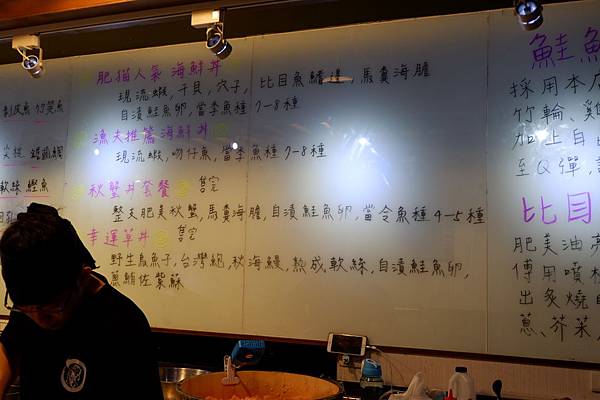 肥猫人氣 海鮮丼
現流蝦,干貝,穴子,比目魚鰭邊,馬糞海膽
自漬鮭魚卵,當季魚種7-8種
漁夫推薦海鮮丼
現流蝦,吻仔魚,當季魚種7-8種
秋蟹丼套餐 售完
整支肥美秋蟹,馬糞海膽,自漬鮭魚卵,當令魚種4-5種
幸運草丼 售完
野生烏魚子,台灣鮑,秋海鰻,熟成軟絲,自漬鮭魚卵,
蔥鮪佐紫蘇
剝皮魚 竹筴魚
軟絲 鰹魚
鮭魚
採用本店
竹輪、雞
加上自
至Q彈,
比目
肥美油
傅用噴槍
出炙燒
蔥、芥菜